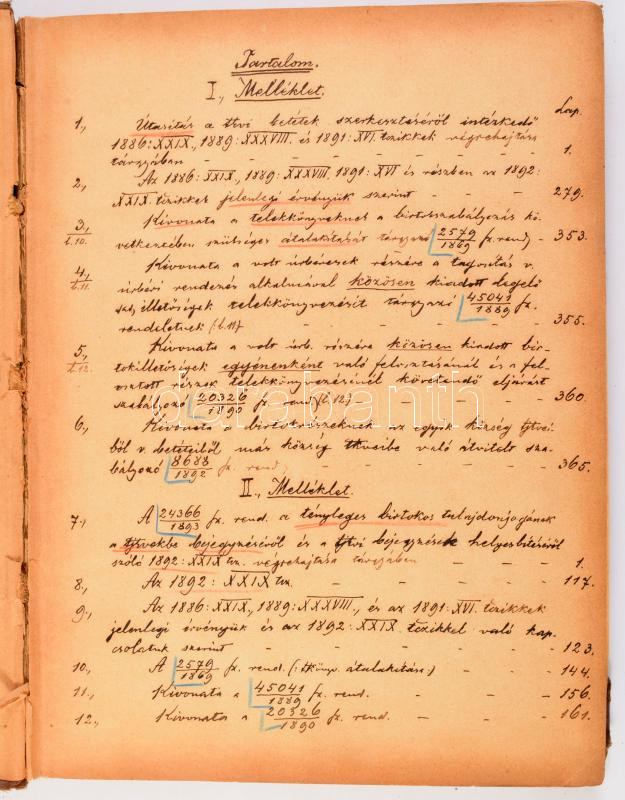 Tartalom.
I., Melléklet.
Lap.
1., Utasítás a tkvi betétek szerkesztéséről intézkedő
1886:XXIX., 1889:XXXVIII. és 1891:XVI. tczikkek végrehajtása
tárgyában – – – – 1.
2., Az 1886:XXIX., 1889:XXXVIII. 1891:XVI és részben az 1892:
XXIX. tczikkek jelenlegi érvényük szerint – – – 279.
3., Kivonata a telekkönyveknek a birtokszabályozás kö-
t.10. vetkeztében szükséges átalakítását tárgyazó 2579/1869 sz. rend. – 353.
4., Kivonata a volt úrbéresek részére a tagosítás v.
t.11. úrbéri rendezés alkalmával közösen kiadott legelő
illetőségek telekkönyvezését tárgyazó 45041/1889 sz.
rendeletnek (t.11) – – – – 355.
5., Kivonata a volt úrb. részére közösen kiadott bir-
t.12. tokilletőségek egyénenként való felosztásánál és a fel-
osztott részek telekkönyvezésénél követendő eljárást
szabályozó 20326/1890 sz. rend. (t.12) – – – 360.
6., Kivonata a birtokrészeknek az egyik község tjkvei-
ből v. betéteiből más község tkveibe való átvitelét sza-
bályozó 8688/1892 sz. rend. – – – – 365.
II., Melléklet.
7., A 24366/1893 sz. rend. a tényleges birtokos tulajdonjogának
a tjkvekbe bejegyzéséről és a tjkvi bejegyzések helyesbítéséről
szóló 1892:XXIX tcz. végrehajtása tárgyában – – 1.
8., Az 1892:XXIX tcz. – – – – 117.
9., Az 1886:XXIX., 1889:XXXVIII., és az 1891:XVI. tczikkek
jelenlegi érvényük és az 1892:XXIX. tczikkel való kap-
csolatuk szerint – – – – 123.
10., A 2579/1869 sz. rend. (: tkönyv. átalakítása :) – – 144.
11., Kivonata a 45041/1889 sz. rend. – – – 156.
12., Kivonata a 20326/1890 sz. rend. – – – 161.
darabanth